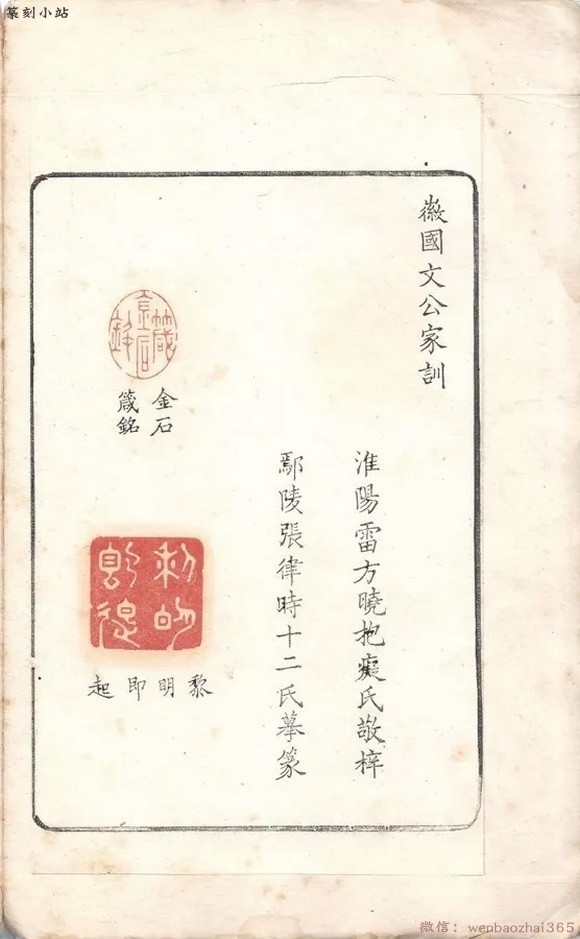 篆刻小站
徽國文公家訓
淮陽雷方曉抱癡氏敬梓
鄢陵張律時十二氏摹篆
金石箴銘
金石
箴銘
黎明即起
黎明即起
微信：wenbaozhai365